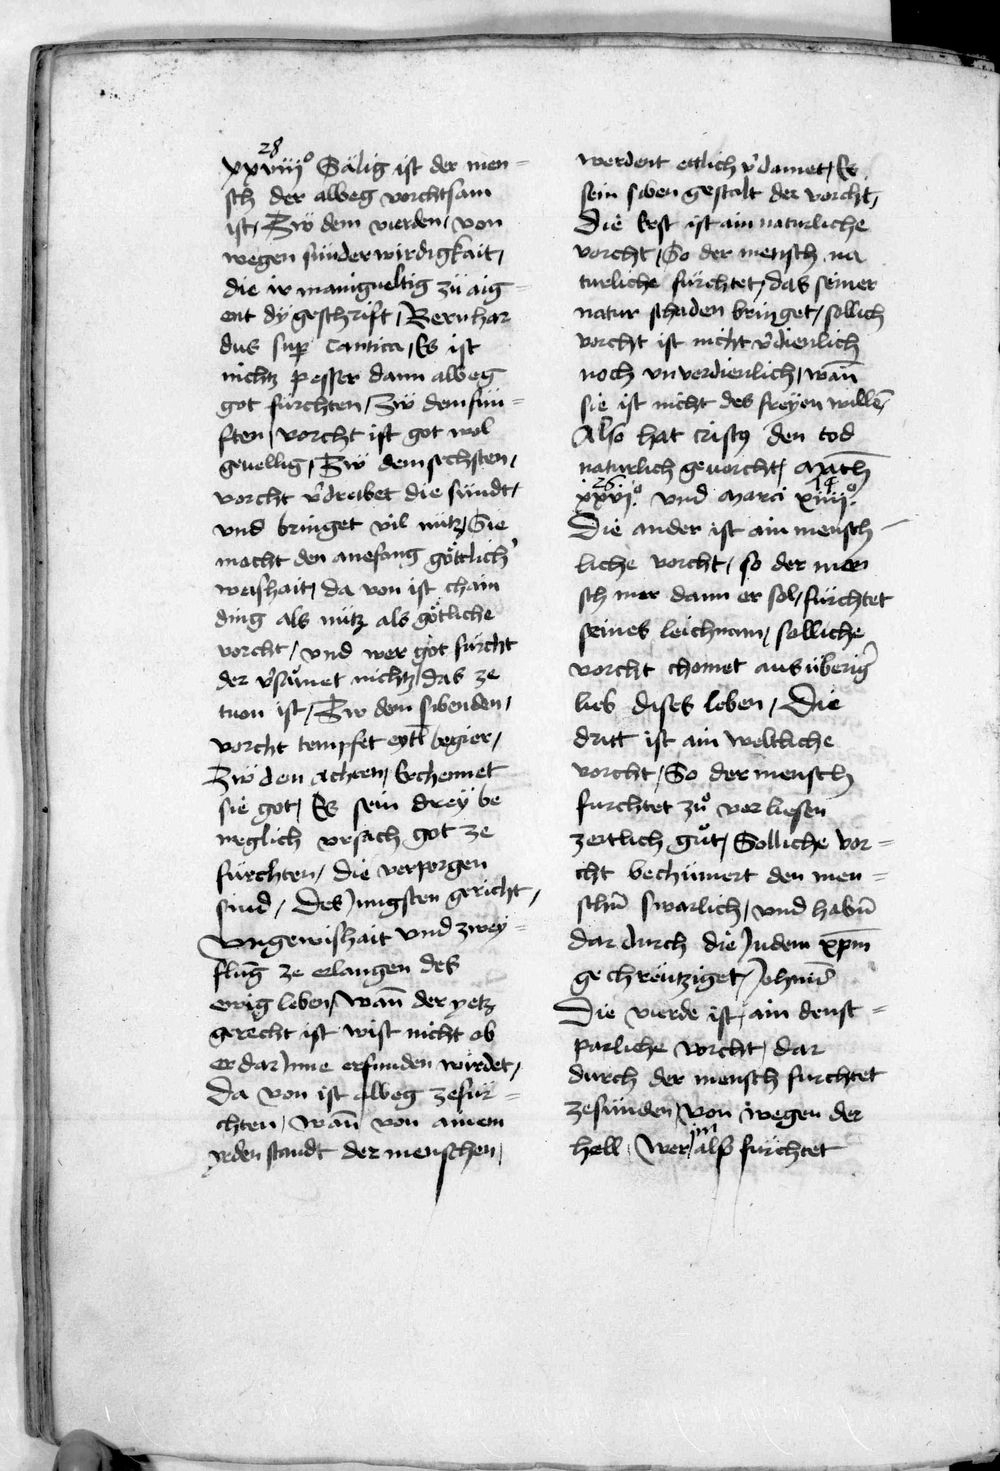 28
xxviiiº Sälig ist der men=
sch der alweg vorchtsam
ist, Zw̄ dem vierden, von
wegen sunderwirdigkait,
die ir manigueltig zu aig=
ent dÿ geschrift, Bernhar
dus sup cantica, Es ist
nichtz pesser dann alweg
got fürchten, Zw̄ dem fun=
ften, vorcht ist got wol
geuellig, Zw̄ dem sechsten,
vorcht v̓dreibet die sündt,
vnd bringet vil nütz, Sie
macht den anefang götlich̓
weishait, da von ist chain
ding als nütz als götliche
vorcht, vnd wer got fürcht
der v̓säumet nichtz, das ze
tuon ist, Zw dem sibenden,
vorcht tempfet eytl begier,
Zw̄ dem Achten, Erchennet
sie got, Es sein dreÿ be
weglich vrsach got ze
fürchten, die verporgen
sind, Des Jungsten gericht,
Vngewishait vnd zwey=
flūg ze erlangen des
ewig leben, Wan̄ der yetz
gerecht ist wist nicht ob
er dar Jnne erfunden wirdet,
Da von ist alweg ze für=
chten, Wan̄ von ainem
yeden standt der menschen,
werdent ettlich v̓damet, Es
sein siben gestalt der vorcht,
Die Erst ist ain naturliche
vorcht, So der mensch na
turliche fürchtet, das seiner
natur schaden bringet, sollich
vorcht ist nicht v̓dienlich
noch vnverdienlich, wan̄
sie ist nicht des freyen willē,
Also hat cristꝰ den tod
naturlich geuorcht, Math̄
26 14
xxviº. vnd Marci xiiiiº.
Die ander ist ain mensch=
liche vorcht, so der men
sch mer dann er sol, fürchtet
seines leichnam, solliche
vorcht chomet aus überig̓
lieb dises leben, Die
dritt ist ain weltliche
vorcht, So der mensch
furchtet zů verliesen
zeitlich gůt, Solliche vor=
cht bechümert den men=
schn̄ swarlich, vnd habn̄
dar durch die Juden xp̄m
gechreütziget, Johnis̄
Die vierde ist ain denst=
parliche vorcht, dar
durch der mensch furchtet
ze sünden, von wegen der
hell, Wer im also fürchtet